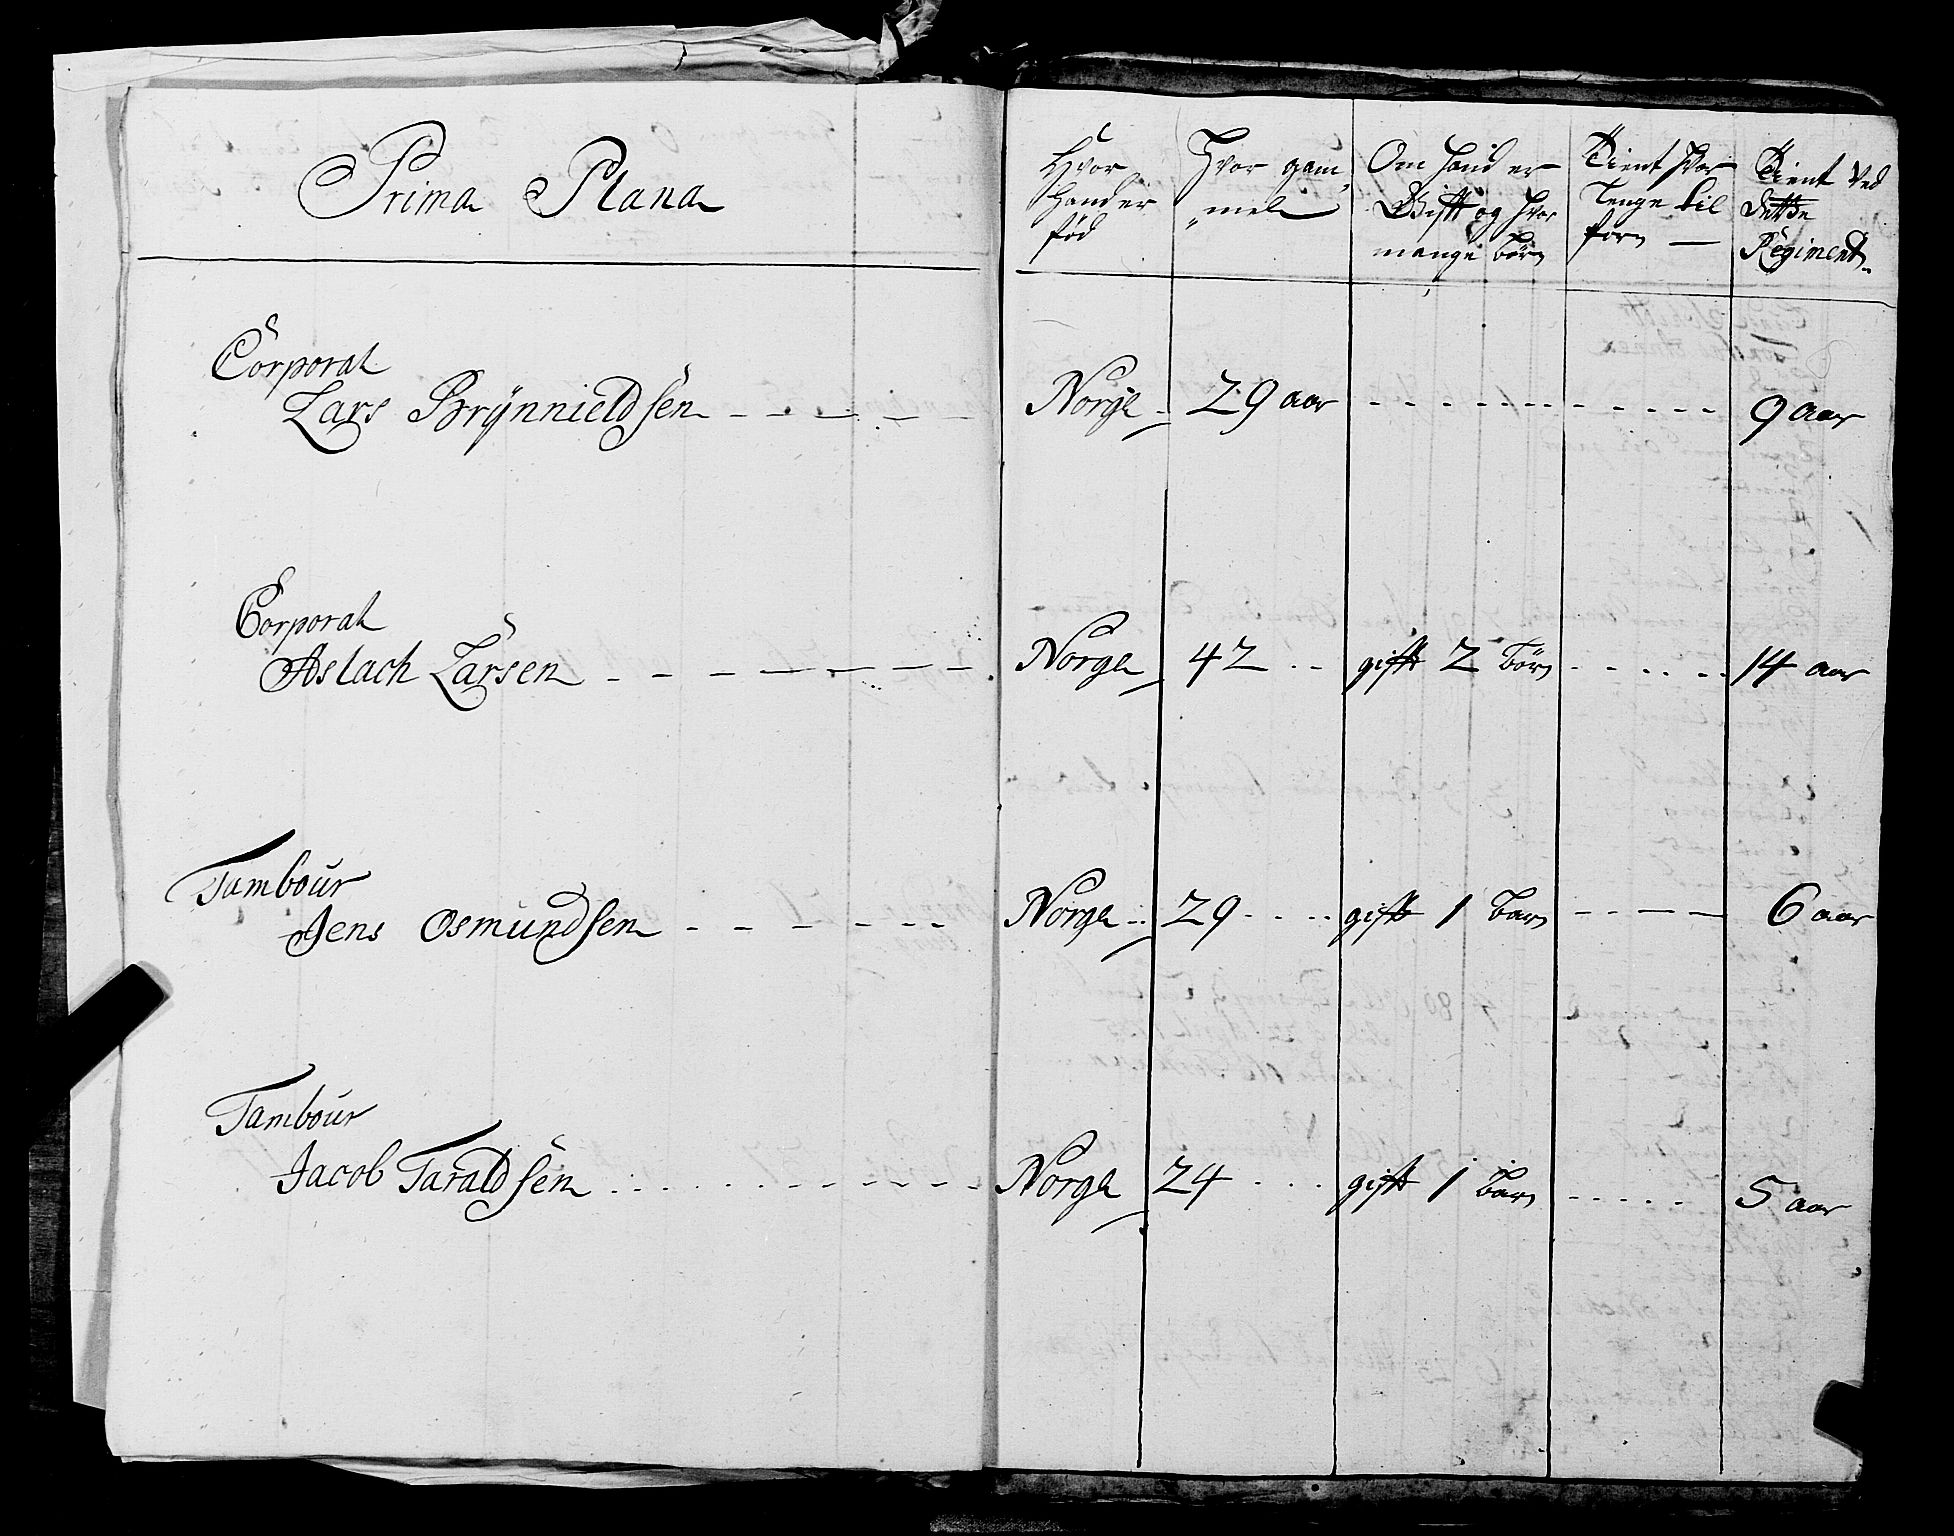 Prima Plana
Hvor Hand er fød
Hvor gam„ „mel
Om hand er Gift og hvor mange børn
Tient hvor lenge til forn —
Tient ved dette Regiment
Corporal
Lars Brÿnnieldsen Norge 29 aar 9 aar
Corporal
Aslach Larsen Norge 42 gift 2 børn 14 aar
Tambour
Jens Osmundsen Norge 29 gift 1 barn 6 aar
Tambour
Jacob Taraldsen Norge 24 gift 1 barn 5 aar